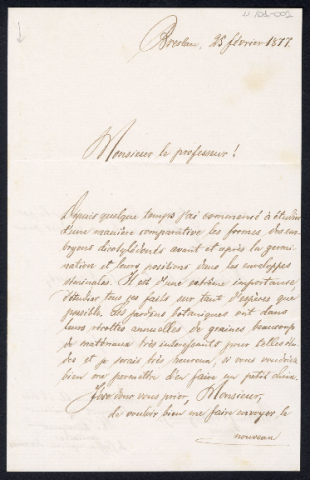 Breslau, 25 février 1877.
Monsieur le professeur !
Depuis quelque temps j'ai commencé à étudier
d'une manière comparative les formes des em-
bryons dicotylédonés avant et après la germi-
nation et leurs positions dans les enveloppes
séminales. Il est d'une extrême importance
d'étudier tous ces faits sur tant d'espèces que
possible. Les jardins botaniques ont dans
leurs récoltes annuelles de graines beaucoup
de matériaux très intéressants pour telles étu-
des et je serais très heureux, si vous voudriez
bien me permettre d'en faire un petit choix.
J'ose donc vous prier, Monsieur,
de vouloir bien me faire envoyer le
nouveau